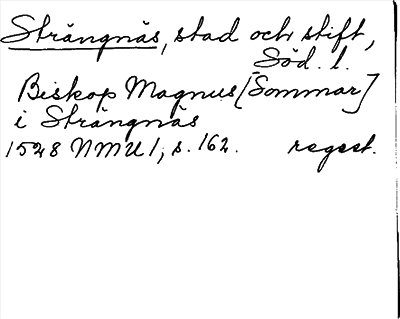 Strängnäs, stad och stift,
Söd. l.
Biskop Magnus [Sommar]
i Strängnäs
1528 NMU 1, s. 162. regest.